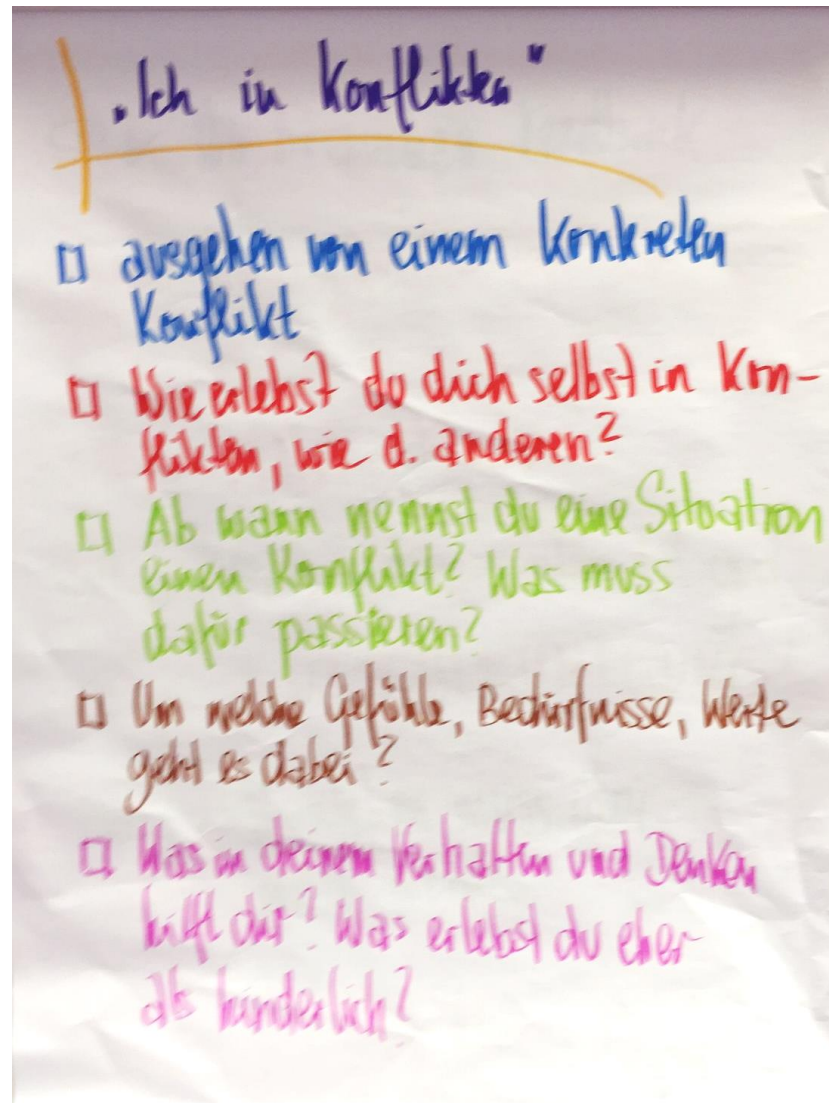 „Ich in Konflikten"
ausgehen von einem konkreten
Konflikt
Wie erlebst du dich selbst in Kon-
flikten, wie d. anderen?
Ab wann nennst du eine Situation
einen Konflikt? Was muss
dafür passieren?
Um welche Gefühle, Bedürfnisse, Werte
geht es dabei?
Was in deinem Verhalten und Denken
hilft dir? Was erlebst du eher
als hinderlich?